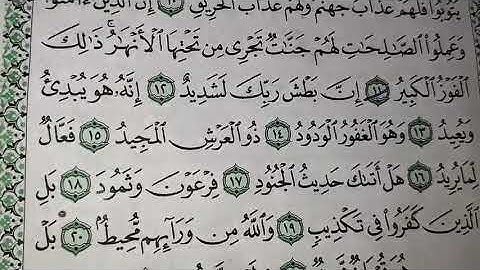 يَتُوبُوا۟ فَلَهُمْ عَذَابُ جَهَنَّمَ وَلَهُمْ عَذَابُ ٱلْحَرِيقِ ١٠ إِنَّ ٱلَّذِينَ ءَامَنُوا۟
وَعَمِلُوا۟ ٱلصَّـٰلِحَـٰتِ لَهُمْ جَنَّـٰتٌ تَجْرِى مِن تَحْتِهَا ٱلْأَنْهَـٰرُ ۚ ذَٰلِكَ
ٱلْفَوْزُ ٱلْكَبِيرُ ١١ إِنَّ بَطْشَ رَبِّكَ لَشَدِيدٌ ١٢ إِنَّهُۥ هُوَ يُبْدِئُ
وَيُعِيدُ ١٣ وَهُوَ ٱلْغَفُورُ ٱلْوَدُودُ ١٤ ذُو ٱلْعَرْشِ ٱلْمَجِيدُ ١٥ فَعَّالٌ
لِّمَا يُرِيدُ ١٦ هَلْ أَتَىٰكَ حَدِيثُ ٱلْجُنُودِ ١٧ فِرْعَوْنَ وَثَمُودَ ١٨ بَلِ
ٱلَّذِينَ كَفَرُوا۟ فِى تَكْذِيبٍ ١٩ وَٱللَّهُ مِن وَرَآئِهِم مُّحِيطٌۢ ٢٠ بَلْ